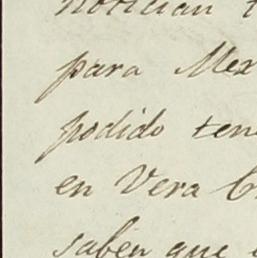 notician t
para Mex
podido ten
en Vera C
saben que